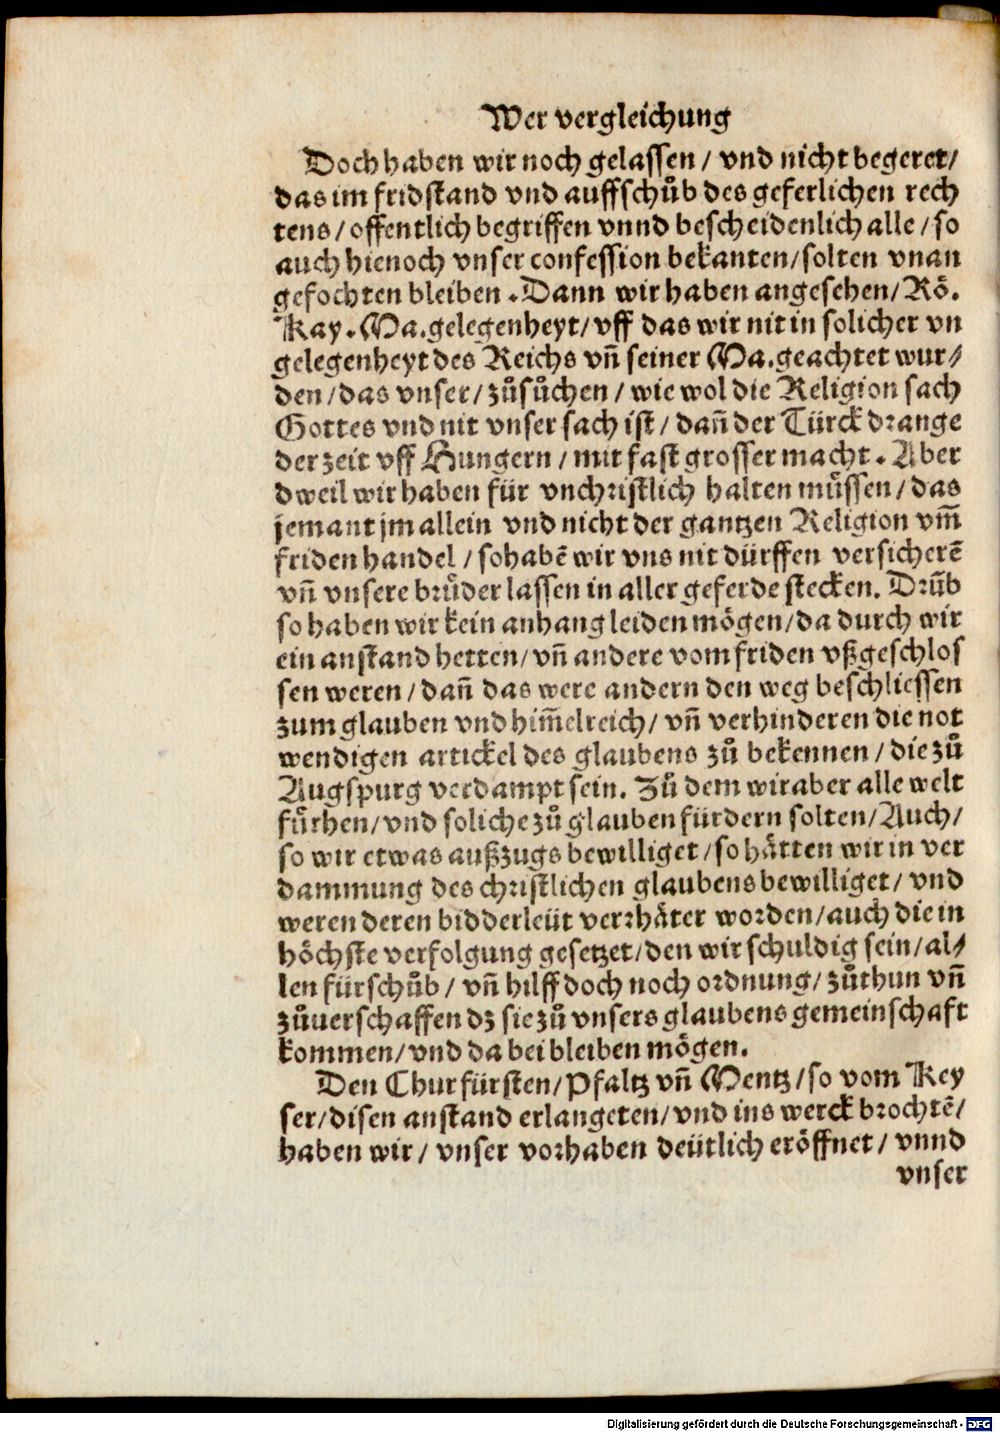 Wer vergleichung
Doch haben wir noch gelassen / vnd nicht begeret /
das im fridstand vnd auffschůb des geferlichen rech
tens / offentlich begriffen vnnd bescheidenlich alle / so
auch hienoch vnser confession bekanten / solten vnan
gefochten bleiben . Dann wir haben angesehen / Rö.
Kay . Ma . gelegenheyt / vff das wir nit in solicher vn
gelegenheyt des Reichs vñ seiner Ma . geachtet wur⸗
den / das vnser / zůsůchen / wie wol die Religion sach
Gottes vnd nit vnser sach ist / dañ der Türck drange
der zeit vff Hungern / mit fast grosser macht . Aber
dweil wir haben für vnchristlich halten müssen / das
jemant jm allein vnd nicht der gantzen Religion vm̃
friden handel / so habẽ wir vns nit dürffen versicherẽ
vñ vnsere brüder lassen in aller geferde stecken. Drũb
so haben wir kein anhang leiden mögen / da durch wir
ein anstand hetten / vñ andere vom friden vßgeschlos
sen weren / dañ das were andern den weg beschliessen
zum glauben vnd him̃elreich / vñ verhinderen die not
wendigen artickel des glaubens zů bekennen / die zů
Augspurg verdampt sein. Zů dem wir aber alle welt
fürhen / vnd soliche zů glauben fürdern solten / Auch /
so wir etwas außzugs bewilliget / so hätten wir in ver
dammung des christlichen glaubens bewilliget / vnd
weren deren bidderleüt verrhäter worden / auch die in
höchste verfolgung gesetzet / den wir schuldig sein / al⸗
len fürschůb / vñ hilff doch noch ordnung / zůthun vñ
zůuerschaffen dz sie zů vnsers glaubens gemeinschaft
kommen / vnd da bei bleiben mögen.
Den Churfürsten / Pfaltz vñ Mentz / so vom Key
ser / disen anstand erlangeten / vnd ins werck brochtẽ /
haben wir / vnser vorhaben deütlich eröffnet / vnnd
vnser
Digitalisierung gefördert durch die Deutsche Forschungsgemeinschaft - DFG